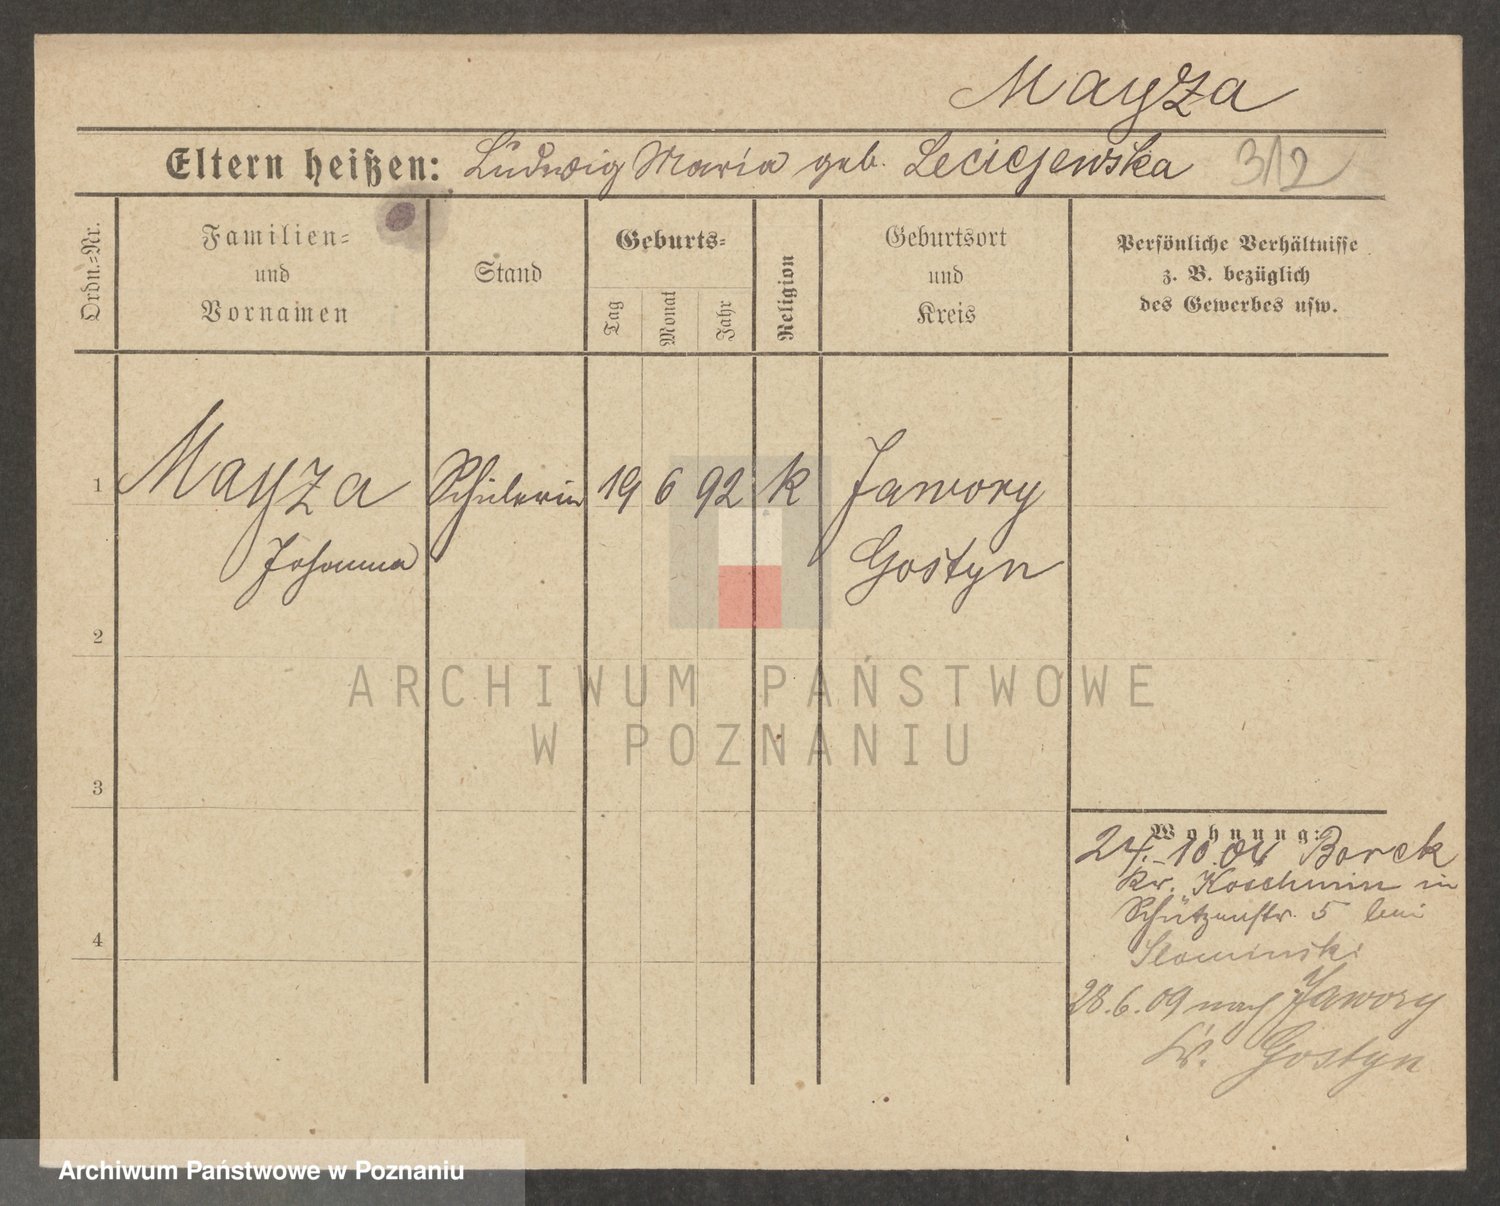 Mayza
Eltern heißen: Ludwig Maria geb. Leciejewska 312
Ordn.-Nr.
Familien-
und
Vornamen
Stand
Geburts-
Tag
Monat
Jahr
Religion
Geburtsort
und
Kreis
Persönliche Verhältnisse
z. B. bezüglich
des Gewerbes usw.
1 Mayza Schülerin 19 6 92 k Jawory
Johanna Gostyn
2
3
4
Wohnung:
24.-10.04 Borek
Kr. Koschmin in
Schützenstr. 5 bei
Slominski
28.6.09 nach Jawory
Kr. Gostyn
ARCHIWUM PAŃSTWOWE
W POZNANIU
Archiwum Państwowe w Poznaniu